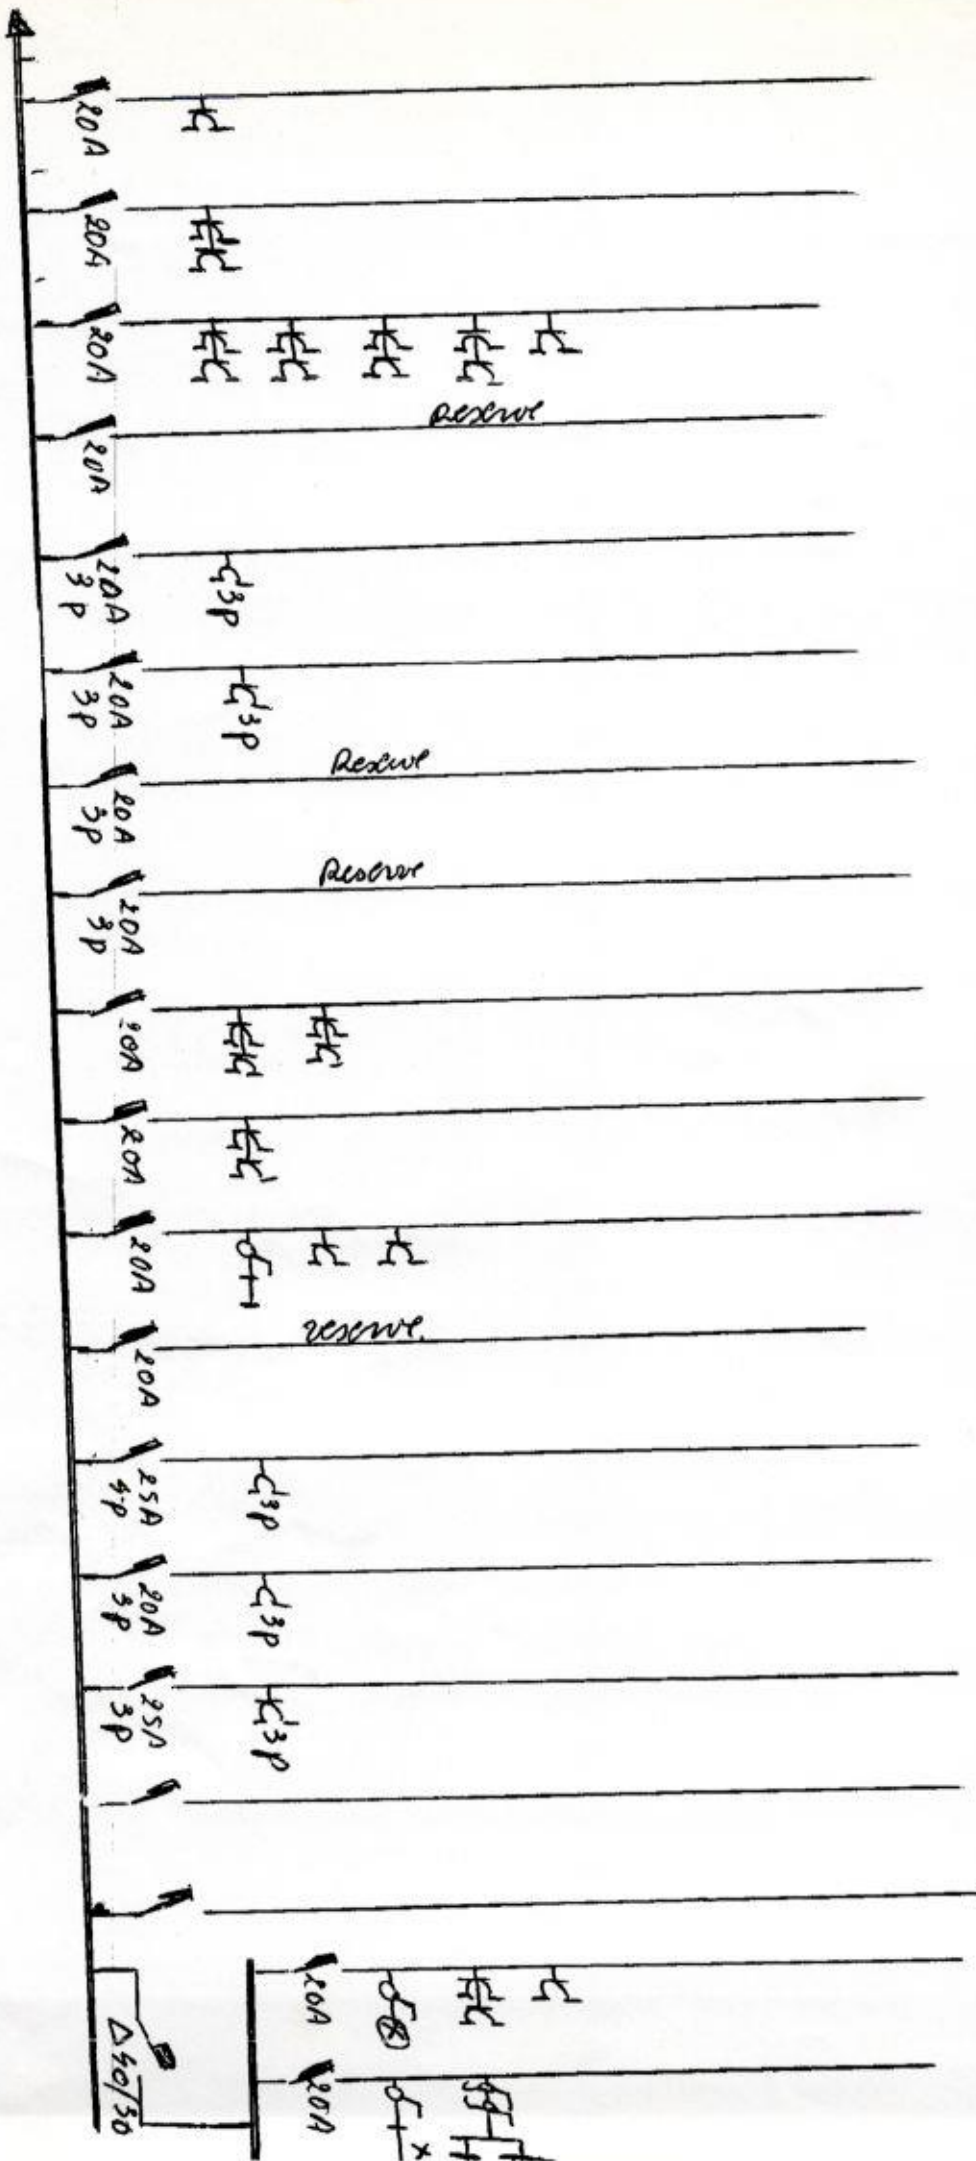 20A
20A
20A
Reserve
20A
20A
3p
3p
20A
3p
3p
Reserve
20A
3p
Reserve
20A
3p
20A
20A
20A
reserve.
20A
25A
4p
3p
20A
3p
3p
25A
3p
3p
20A
Δ40/30
20A
x